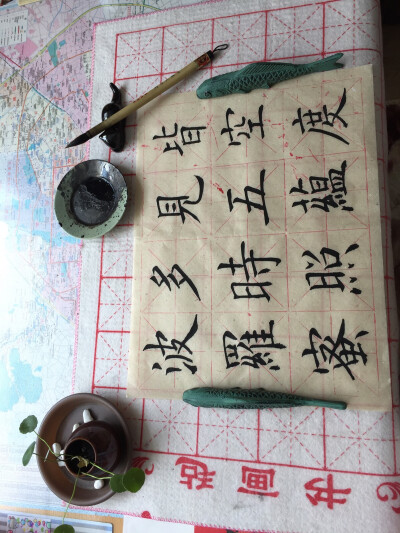 波羅蜜
多時照
見五蘊
皆空度
书画毡